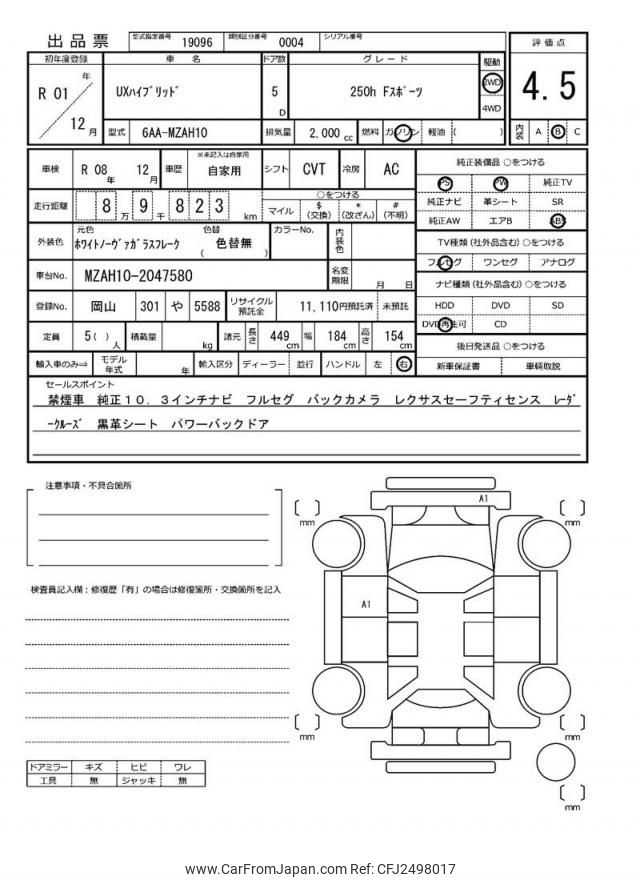 出品票 型式指定番号 19096 類別区分番号 0004 シリアル番号
初年度登録 車名 ドア数 グレード 駆動 評価点
R 01 年 12 月 UXﾊｲﾌﾞﾘｯﾄﾞ 5 D 250h Fｽﾎﾟｰﾂ 2WD 4WD 4.5
型式 6AA-MZAH10 排気量 2,000 cc 燃料 ガソリン 軽油 ( ) 内装 A B C
車検 R 08 年 12 月 車歴 ※未記入は自家用 自家用 シフト CVT 冷房 AC
走行距離 8 万 9 千 8 2 3 km ○をつける
マイル $ (交換) * (改ざん) # (不明)
外装色 元色 ﾎﾜｲﾄﾉｰｳﾞｧｶﾞﾗｽﾌﾚｰｸ 色替 ( 色替無 ) カラーNo. 内装色
車台No. MZAH10-2047580 名変期限 月 日
登録No. 岡山 301 や 5588 リサイクル預託金 11,110円預託済 未預託
定員 5 ( ) 人 積載量 kg 諸元 長さ 449 cm 幅 184 cm 高さ 154 cm
輸入車のみ⇒ モデル年式 年 輸入区分 ディーラー 並行 ハンドル 左 右
純正装備品 ○をつける
PS PW 純正TV
純正ナビ 革シート SR
純正AW エアB ABS
TV種類 (社外品含む) ○をつける
フルセグ ワンセグ アナログ
ナビ種類 (社外品含む) ○をつける
HDD DVD SD
DVD再生可 CD
後日発送品 ○をつける
新車保証書 車輌取説
セールスポイント
禁煙車 純正10.3インチナビ フルセグ バックカメラ レクサスセーフティセンス ﾚｰﾀﾞ
ｰｸﾙｰｽﾞ 黒革シート パワーバックドア
注意事項・不具合箇所
検査員記入欄：修復歴「有」の場合は修復箇所・交換箇所を記入
A1
[ ] mm [ ] mm
A1
[ ] mm [ ] mm
[ ] mm
ドアミラー キズ ヒビ ワレ
工具 無 ジャッキ 無
www.CarFromJapan.com Ref: CFJ2498017